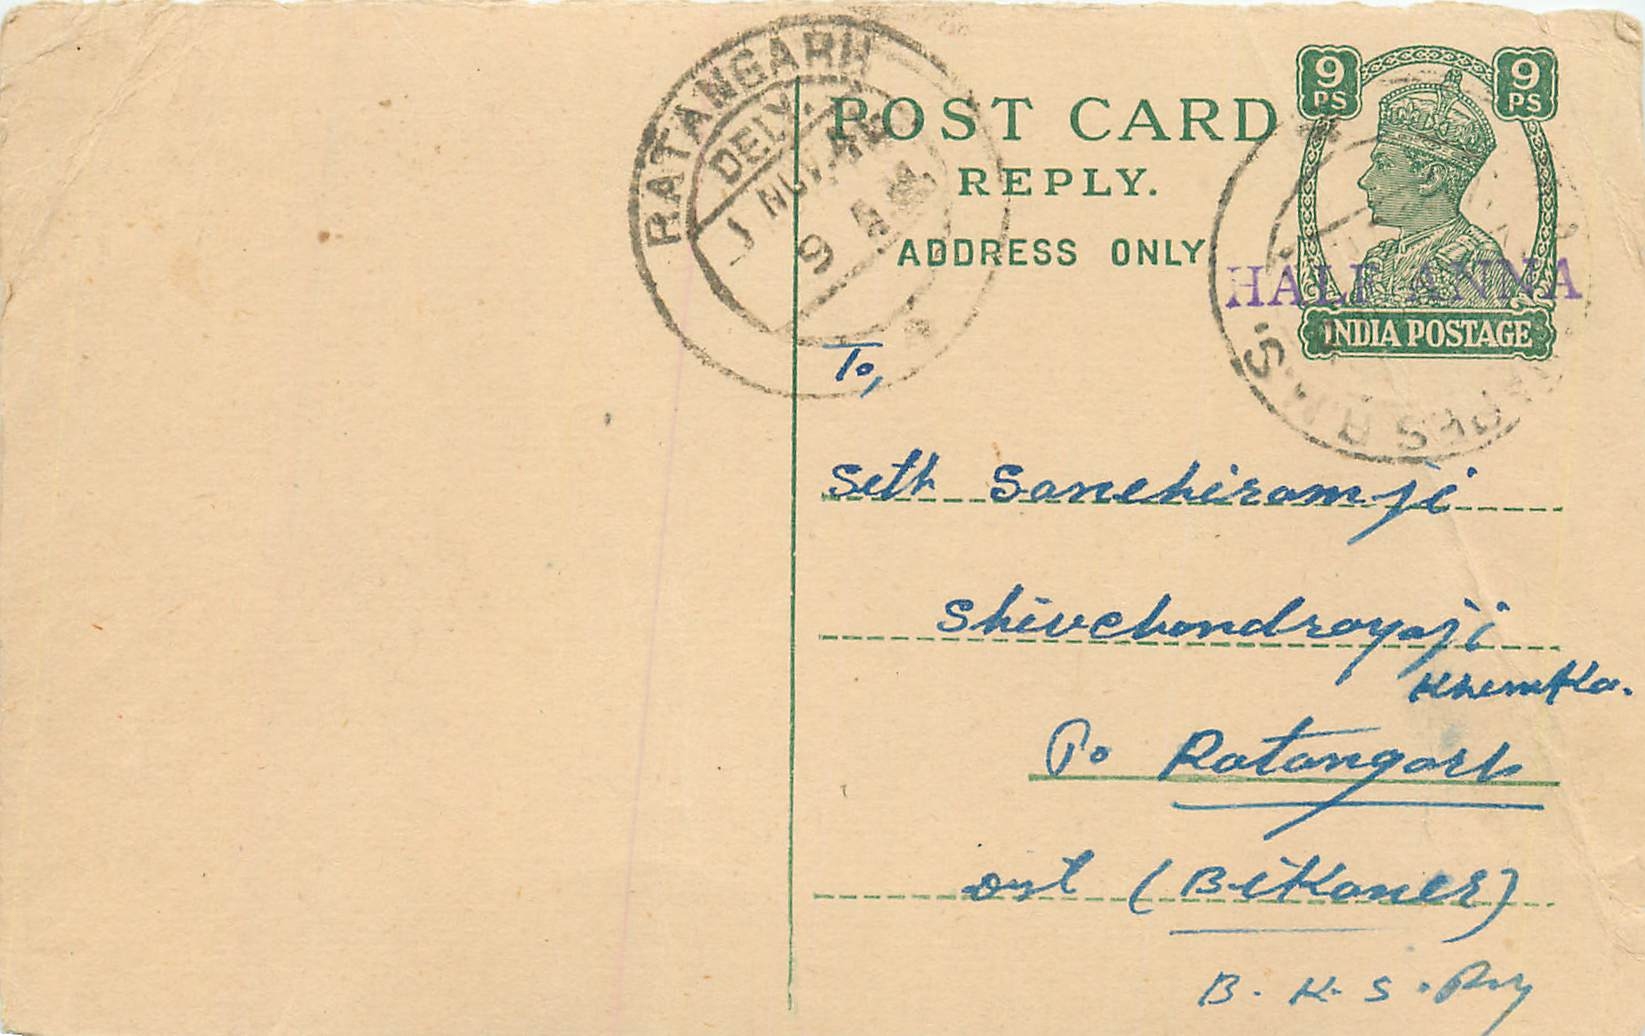 RATANGARH
DELY.
1 NOV. 46
9 A
POST CARD
REPLY.
ADDRESS ONLY
9 PS 9 PS
HALF ANNA
INDIA POSTAGE
R.M.S.
To,
Seth Sanehiramji
Shivchandrayaji
Khemka.
Po Ratangarh
Dist (Bikaner)
B. K. S. Rly